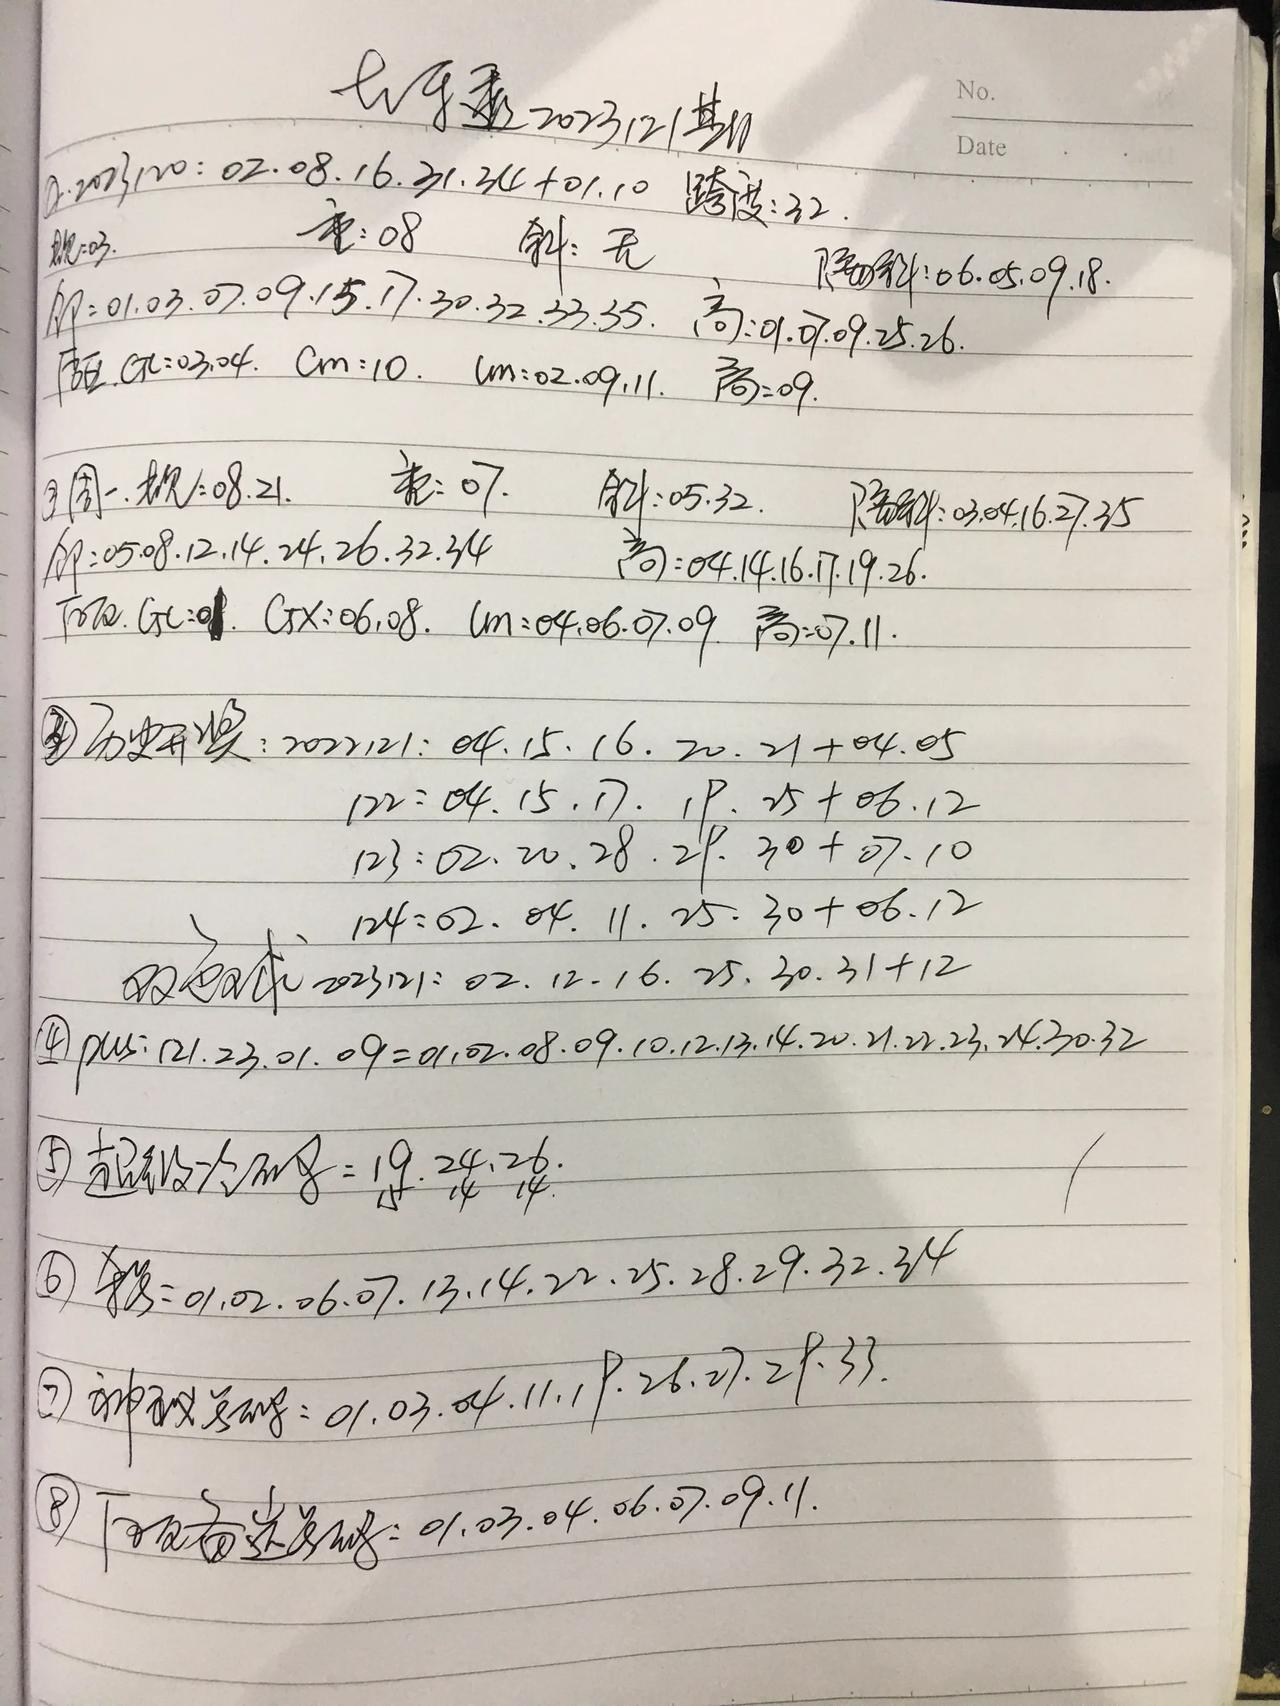 大乐透2023121期
No.
Date
①.2023120：02.08.16.31.34+01.10 跨度：32.
规：03. 重：08 斜：无 隔斜：06.05.09.18.
邻：01.03.07.09.15.17.30.32.33.35. 高：01.07.09.25.26.
后区 GL：03.04. Cm：10. Lm：02.09.11. 高：09.
②周一.规：08.21. 重：07. 斜：05.32. 隔斜：03.04.16.27.35
邻：05.08.12.14.24.26.32.34 高：04.14.16.17.19.26.
下区.GL：01. GX：06.08. Lm：04.06.07.09 高：07.11.
③历史开奖：2022121：04.15.16.20.21+04.05
122：04.15.17.19.25+06.12
123：02.20.28.29.30+07.10
124：02.04.11.25.30+06.12
双色球2023121：02.12.16.25.30.31+12
④plus：121.23.01.09=01.02.08.09.10.12.13.14.20.21.22.23.24.30.32
⑤超级冷码号=19.24.26.
15 14 14.
⑥=01.02.06.07.13.14.22.25.28.29.32.34
⑦神秘号码：01.03.04.11.19.26.27.29.33.
⑧下区备选号码：01.03.04.06.07.09.11.